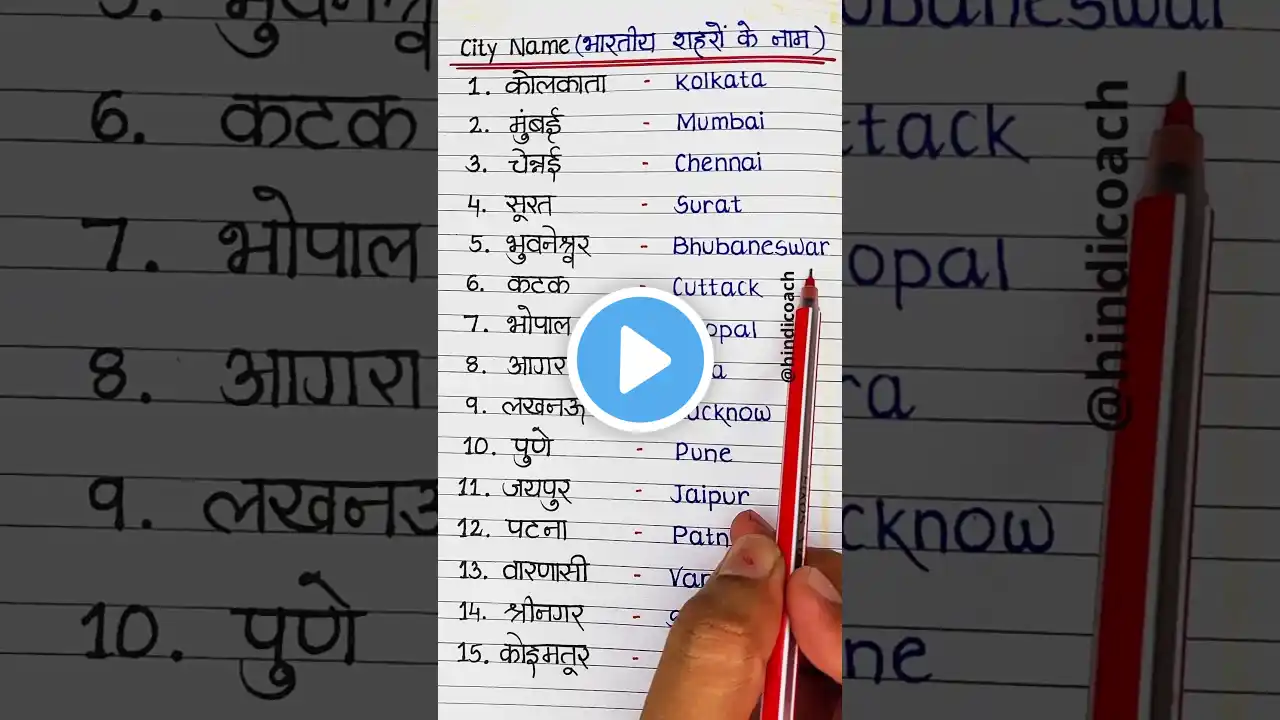 City Name (भारतीय शहरों के नाम)
1. कोलकाता - Kolkata
2. मुंबई - Mumbai
3. चेन्नई - Chennai
4. सूरत - Surat
5. भुवनेश्वर - Bhubaneswar
6. कटक - Cuttack
7. भोपाल opal
8. आगर a
9. लखनऊ ucknow
10. पुणे - Pune
11. जयपुर - Jaipur
12. पटना - Patn
13. वारणासी - Var
14. श्रीनगर -
15. कोइमतूर -
@hindicoach
6. कटक ttack
7. भोपाल opal
8. आगरा ra
9. लखनऊ cknow
10. पुणे ne
@hindicoach